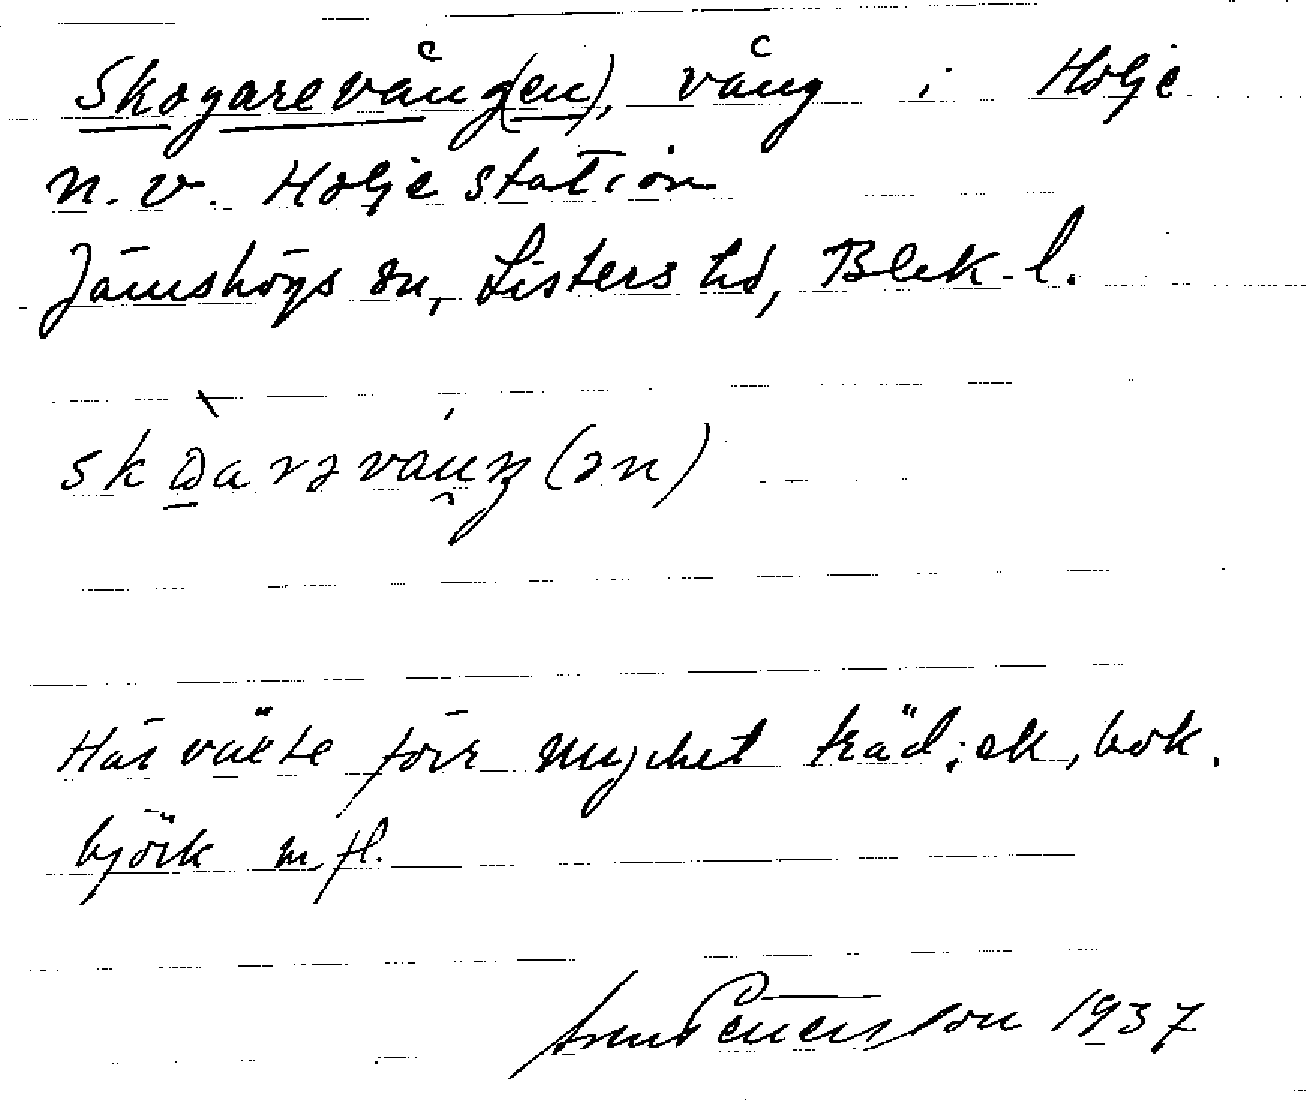 Skogarevång(en), vång i Holje
n.v. Holje station
Jämshögs sn, Listers hd, Blek. l.
Här växte förr mycket träd; ek, bok,
björk m fl.
1937